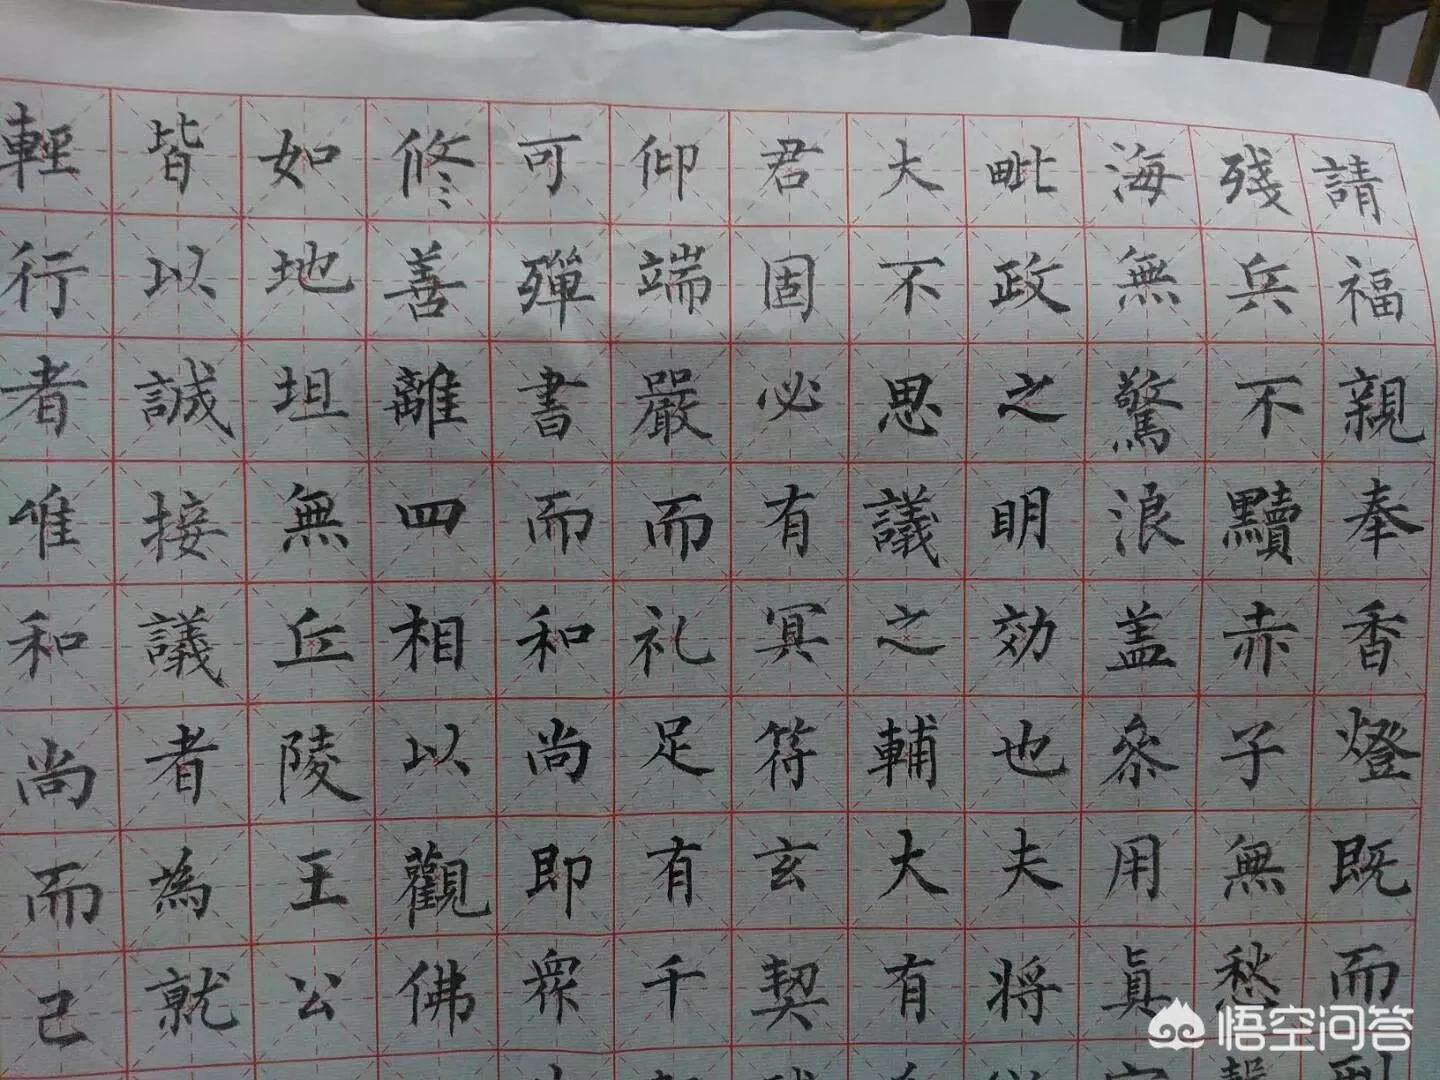 請福親奉香燈既而
殘兵不黷赤子無愁
海無驚浪盖叅用真
毗政之明効也夫將
大不思議之輔大有
君固必有冥符玄契
仰端嚴而礼足有千
可殫書而和尚即衆
修善離四相以觀佛
如地坦無丘陵王公
皆以誠接議者為就
輕行者唯和尚而己
悟空问答